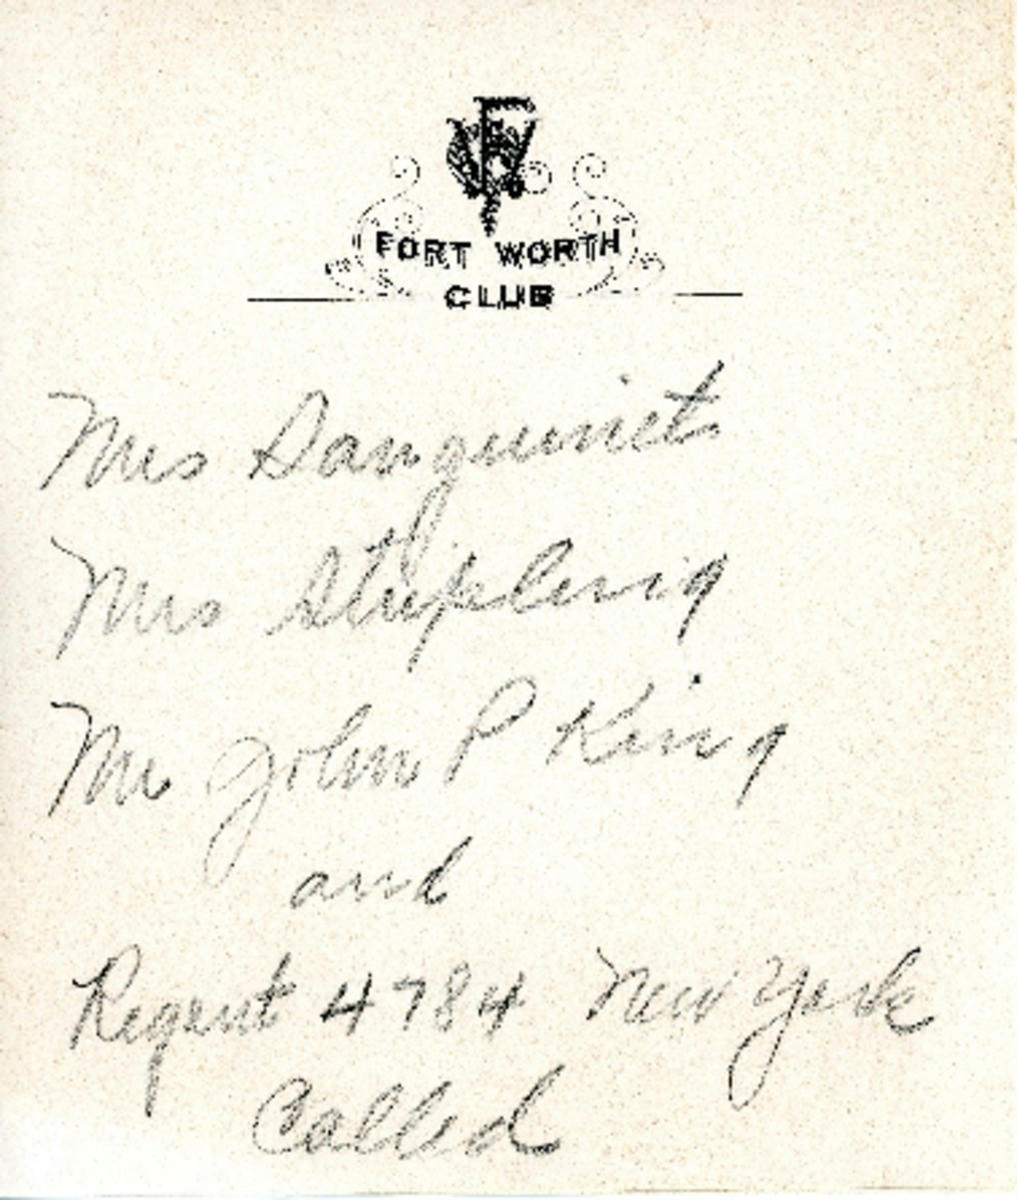 FORT WORTH
CLUB
Mrs Sanguinet
Mrs Stripling
Mr John P King
and
Regent 4784 New York
Called